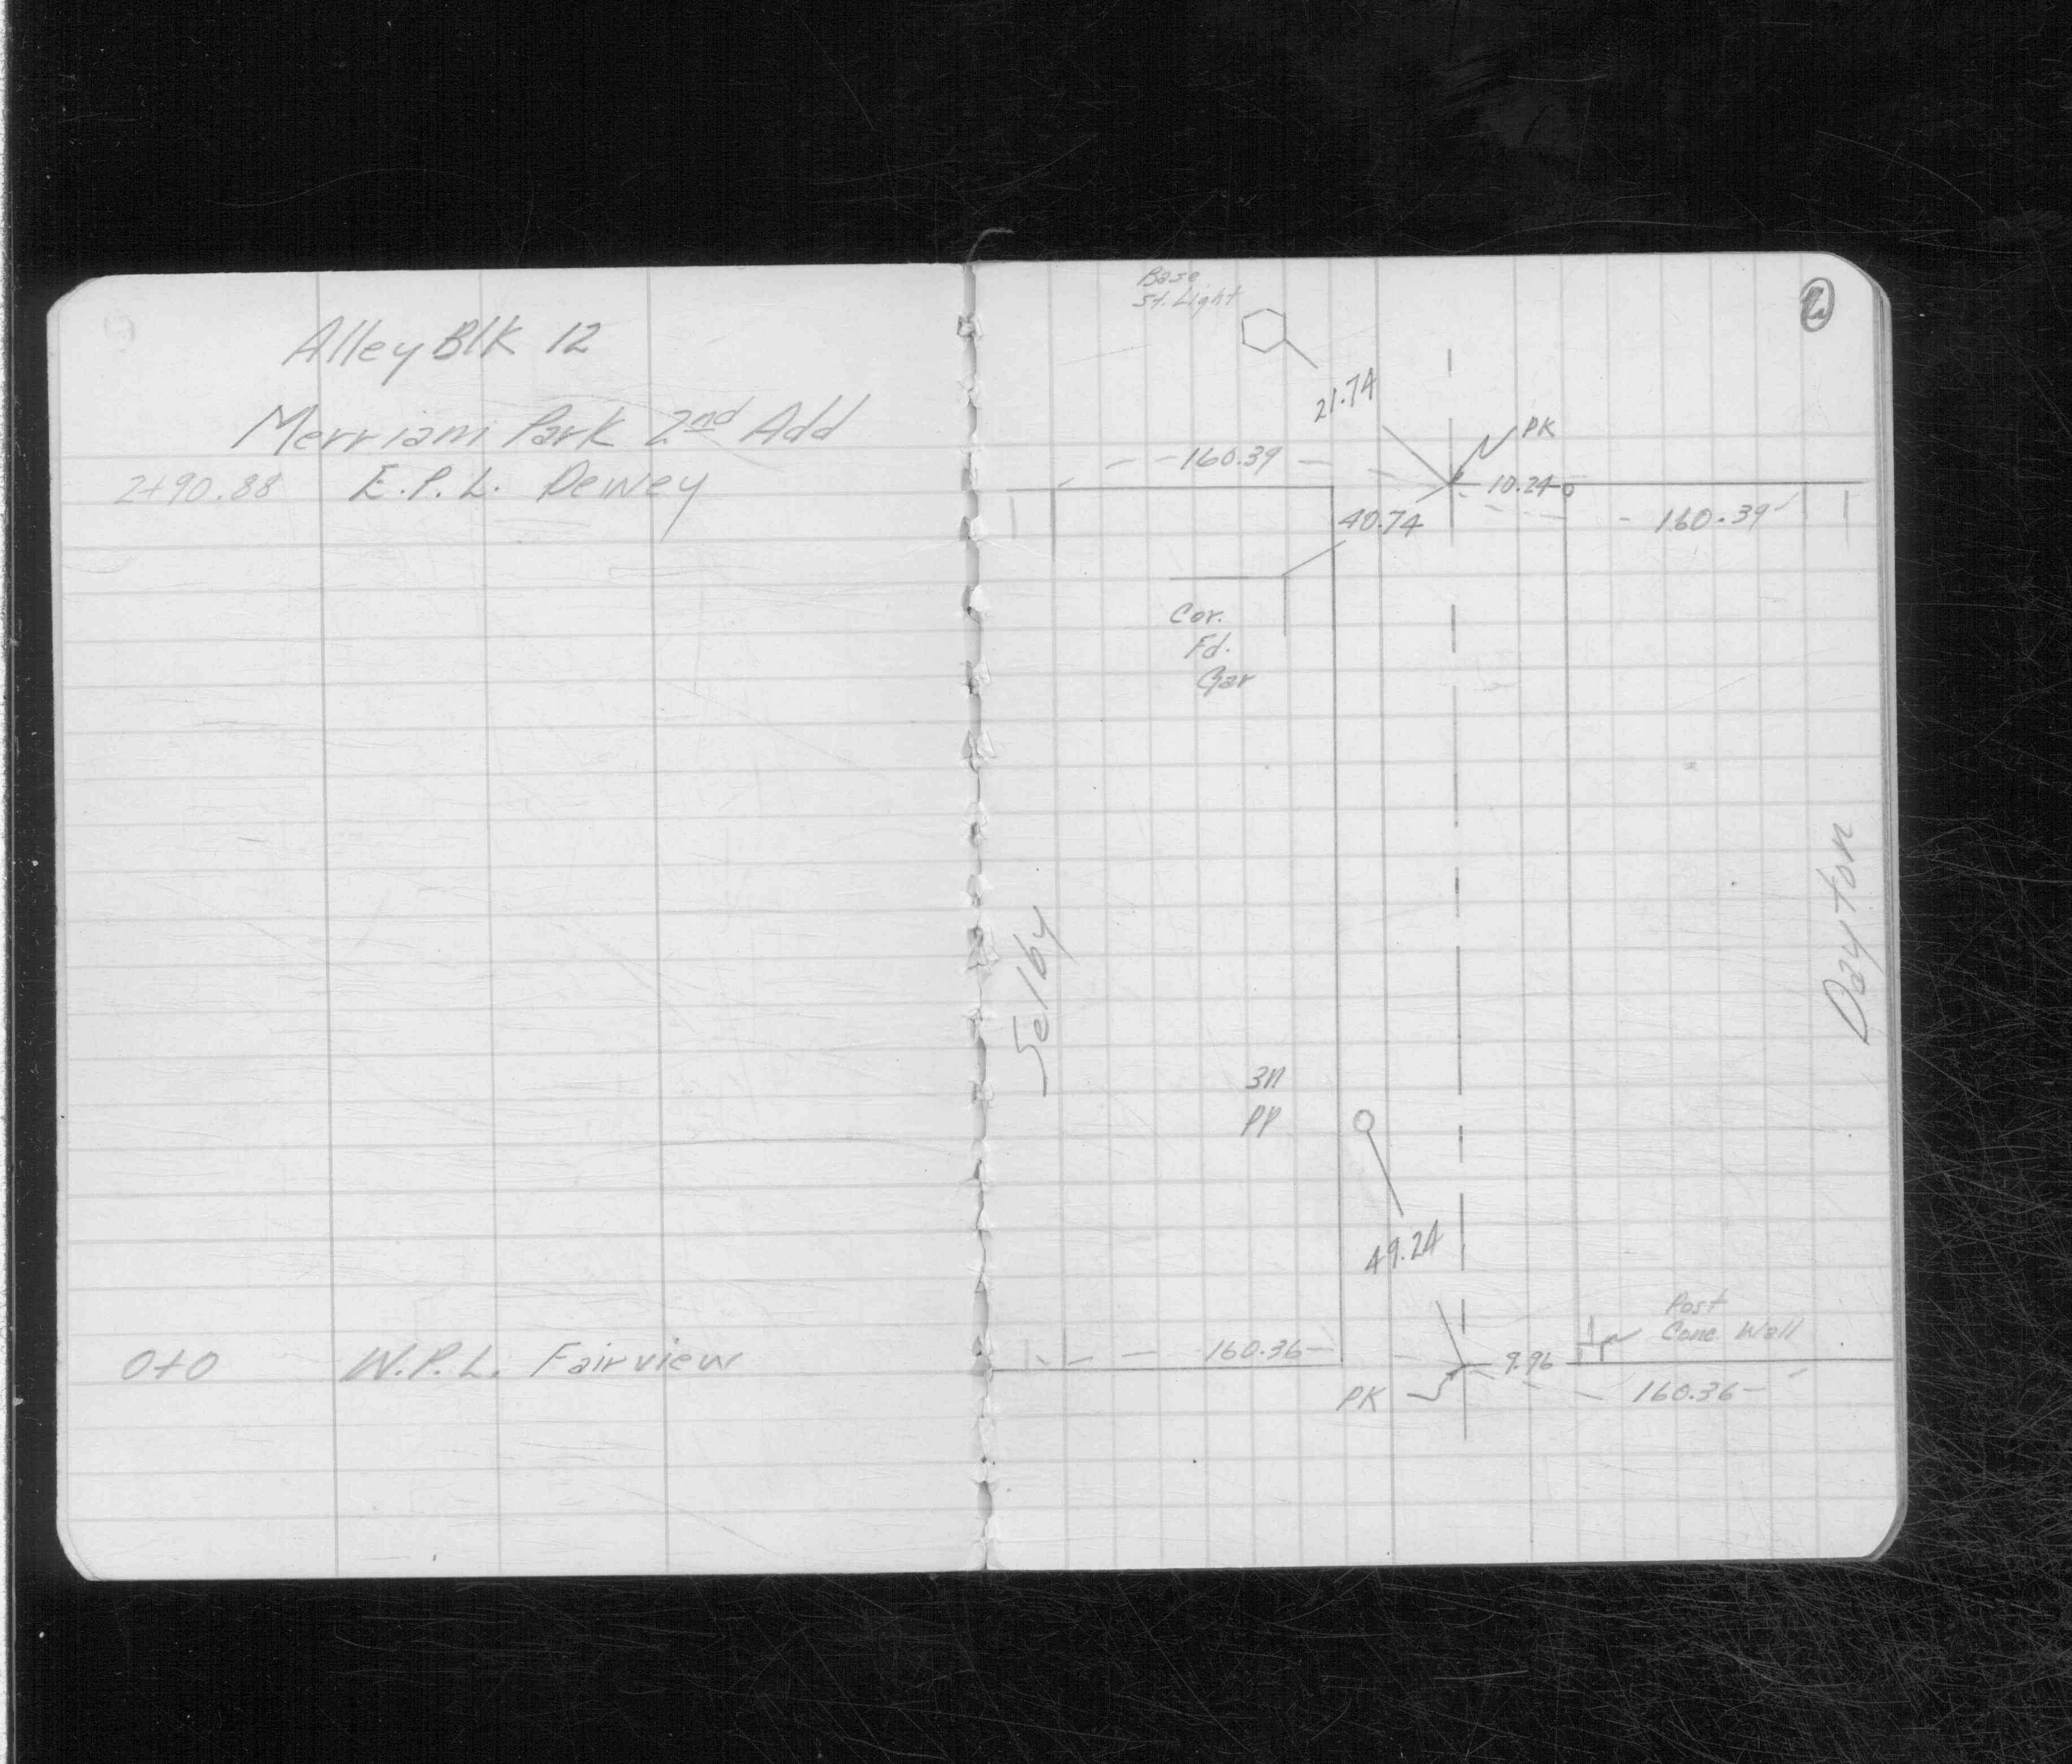 Alley Blk 12
Merriam Park 2nd Add
2+90.88 E.P.L. Dewey
0+0 W.P.L. Fairview
2
Base
St. Light
21.74
PK
160.39
10.24
40.74
160.39
Cor.
Fd.
Gar
Selby
Dayton
PP
49.24
Post
Conc Wall
160.36
9.96
PK
160.36